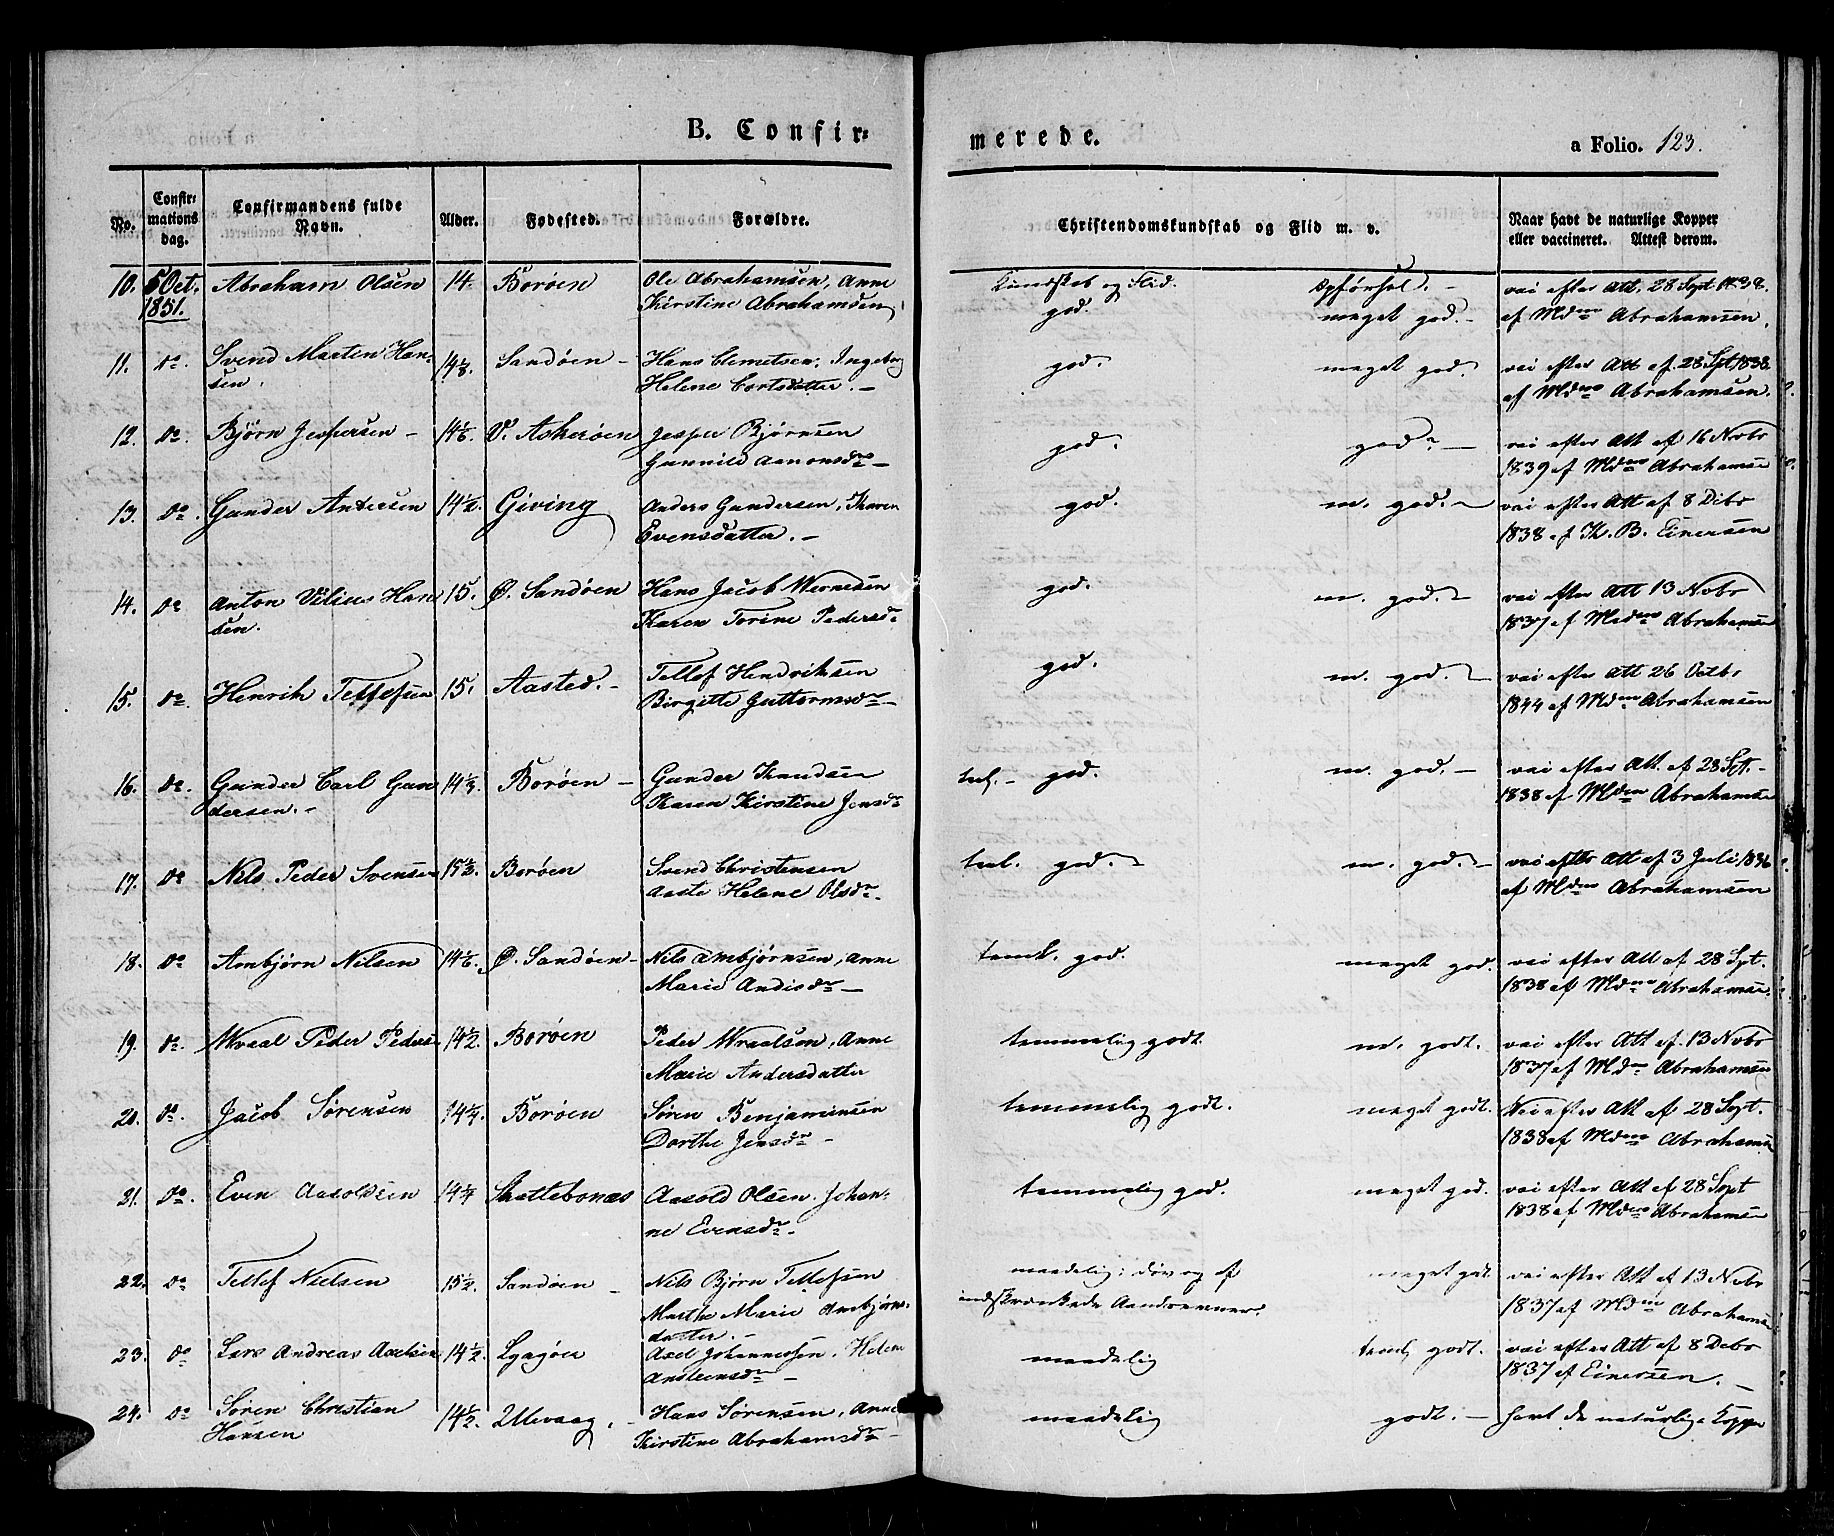 B. Confir=
merede.
a Folio. 123.
No.
Confir=
mations
dag.
Confirmandens fulde
Navn.
Alder.
Fødested.
Forældre.
Christendomskundskab og Flid m. v.
Naar havt de naturlige Kopper
eller vaccineret. Attest derom.
10. 5 Oct. Abraham Olsen 14 Borøen Ole Abrahamsen, Anne Kundskab og Flid. Opførsel. - vac efter Att. 28 Sept 1838.
1851. Kirstine Abrahamsen, god. meget god. - af Mdme Abrahamsen.
11. do. Svend Marten Han= Sandøen - Hans Clemetsen, Ingeborg god. meget god. vac efter Att af 28 Spt 1838
sen. Helene Cortsdatter. - af Mdme Abrahamsen.
12. do. Bjørn Jespersen - V. Askerøen Jesper Bjørnsen god. god. - vac efter Att af 16 Novbr
Gunnild Aanonsdr - 1839 af Mdme Abrahamse
13. do. Gunder Andersen 14½. Giving Anders Gundersen, Karen god. m. god. - vac efter Att af 8 Debr
Evensdatter. - 1838 af Th. B. Einersen
14. do Anton Vilius Han 15. Ø. Sandøen Hans Jacob Wernesen god. m. god. - vac efter Att 13 Novbr
sen. Karen Torine Pedersdr 1837 af Madme Abrahamsen
15. do. Henrik Tellefsen 15. Aasted. - Tellef Hendriksen god. m. god. - vac efter Att 26 Octbr
Birgitte Guttormsdr - 1844 af Mdme Abrahamsen
16. do. Gunder Carl Gun Borøen - Gunder Knudsen tml. - god. m. god. - vac efter Att. af 28 Spt. -
dersen. - Karen Kirstine Jensdr 1838 af Mdme Abrahamse
17. do Nils Peder Svensen 15½. Borøen Svend Christensen teml. god. m. god. - vac efter Att af 3 Juli 1836
Aaste Helene Olsdr. af Mdme Abrahamsen
18. do Ambjørn Nilsen Ø. Sandøen - Nils Ambjørnsen, Anne teml. god. meget god. vac efter Att af 28 Spt.
Marie Andisdr - 1838 af Mdme Abrahamse.
19. do. Wraal Peder Peders 14½. Borøen Peder Wraalsen, Anne temmelig godt. m. godt. vac efter Att af. 13 Novbr
Marie Andersdatter 1837 af Mdme Abrahamse
20. do. Jacob Sørensen 14¼. Borøen Søren Benjaminsen temmelig godt. meget godt. Vac efter Att af 28 Sept.
Dorthe Jensdr - 1838 af Mdme Abrahamse
21. do. Even Aasoldsen 14¼ Skottebonæs Aasold Olsen. Johan= temmelig god. meget god. vac efter Att af 28 Sept
ne Evensdr. 1838 af Mdme Abrahamse
22. do Tellef Nielsen 15½. Sandøen - Nils Bjørn Tellefsen maadelig; døv og af meget godt. vac efter Att af 13 Novbr
Marthe Marie Ambjørns= indskrænkede Aandsevner. 1837 af Mdme Abrahamse
datter. -
23. do Lars Andreas Axelsen 14½. Lyngøer Axel Johannessen, Helene maadelig teml. godt. vac efter Att af 8 Debr
Ansteensdr - 1837 af Einersen. -
24. do Søren Christian 14½. Ulevaag. - Hans Sørensen, Anne maadelig godt. - havt de naturlige Kopper
Hansen Kirstine Abrahamsdr -